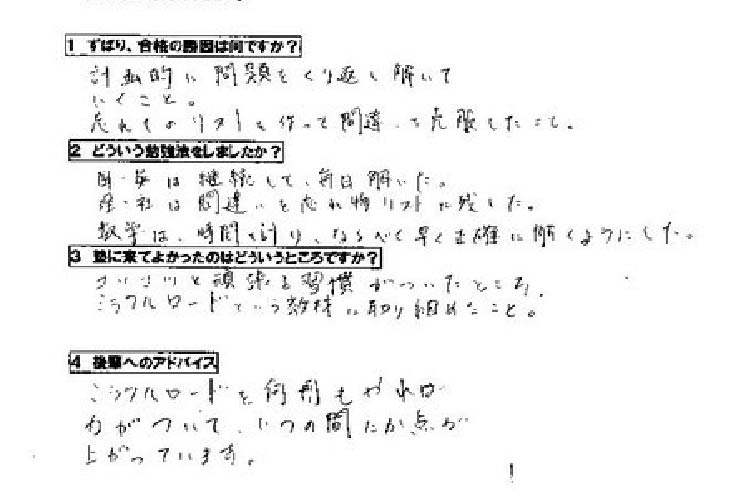 1 ずばり、合格の勝因は何ですか?
計画的に問題をくり返し解いて
いくこと。
忘れものリストを作って間違いを克服したこと。
2 どういう勉強法をしましたか?
国・英は継続して、毎日解いた。
理・社は間違いを忘れ物リストに残した。
数学は、時間を計り、なるべく早く正確に解くようにした。
3 塾に来てよかったのはどういうところですか?
コツコツと頑張る習慣がついたところ。
ミラクルロードという教材に取り組めたこと。
4 後輩へのアドバイス
ミラクルロードを何周もやれば
力がついて、いつの間にか点が
上がっています。
!